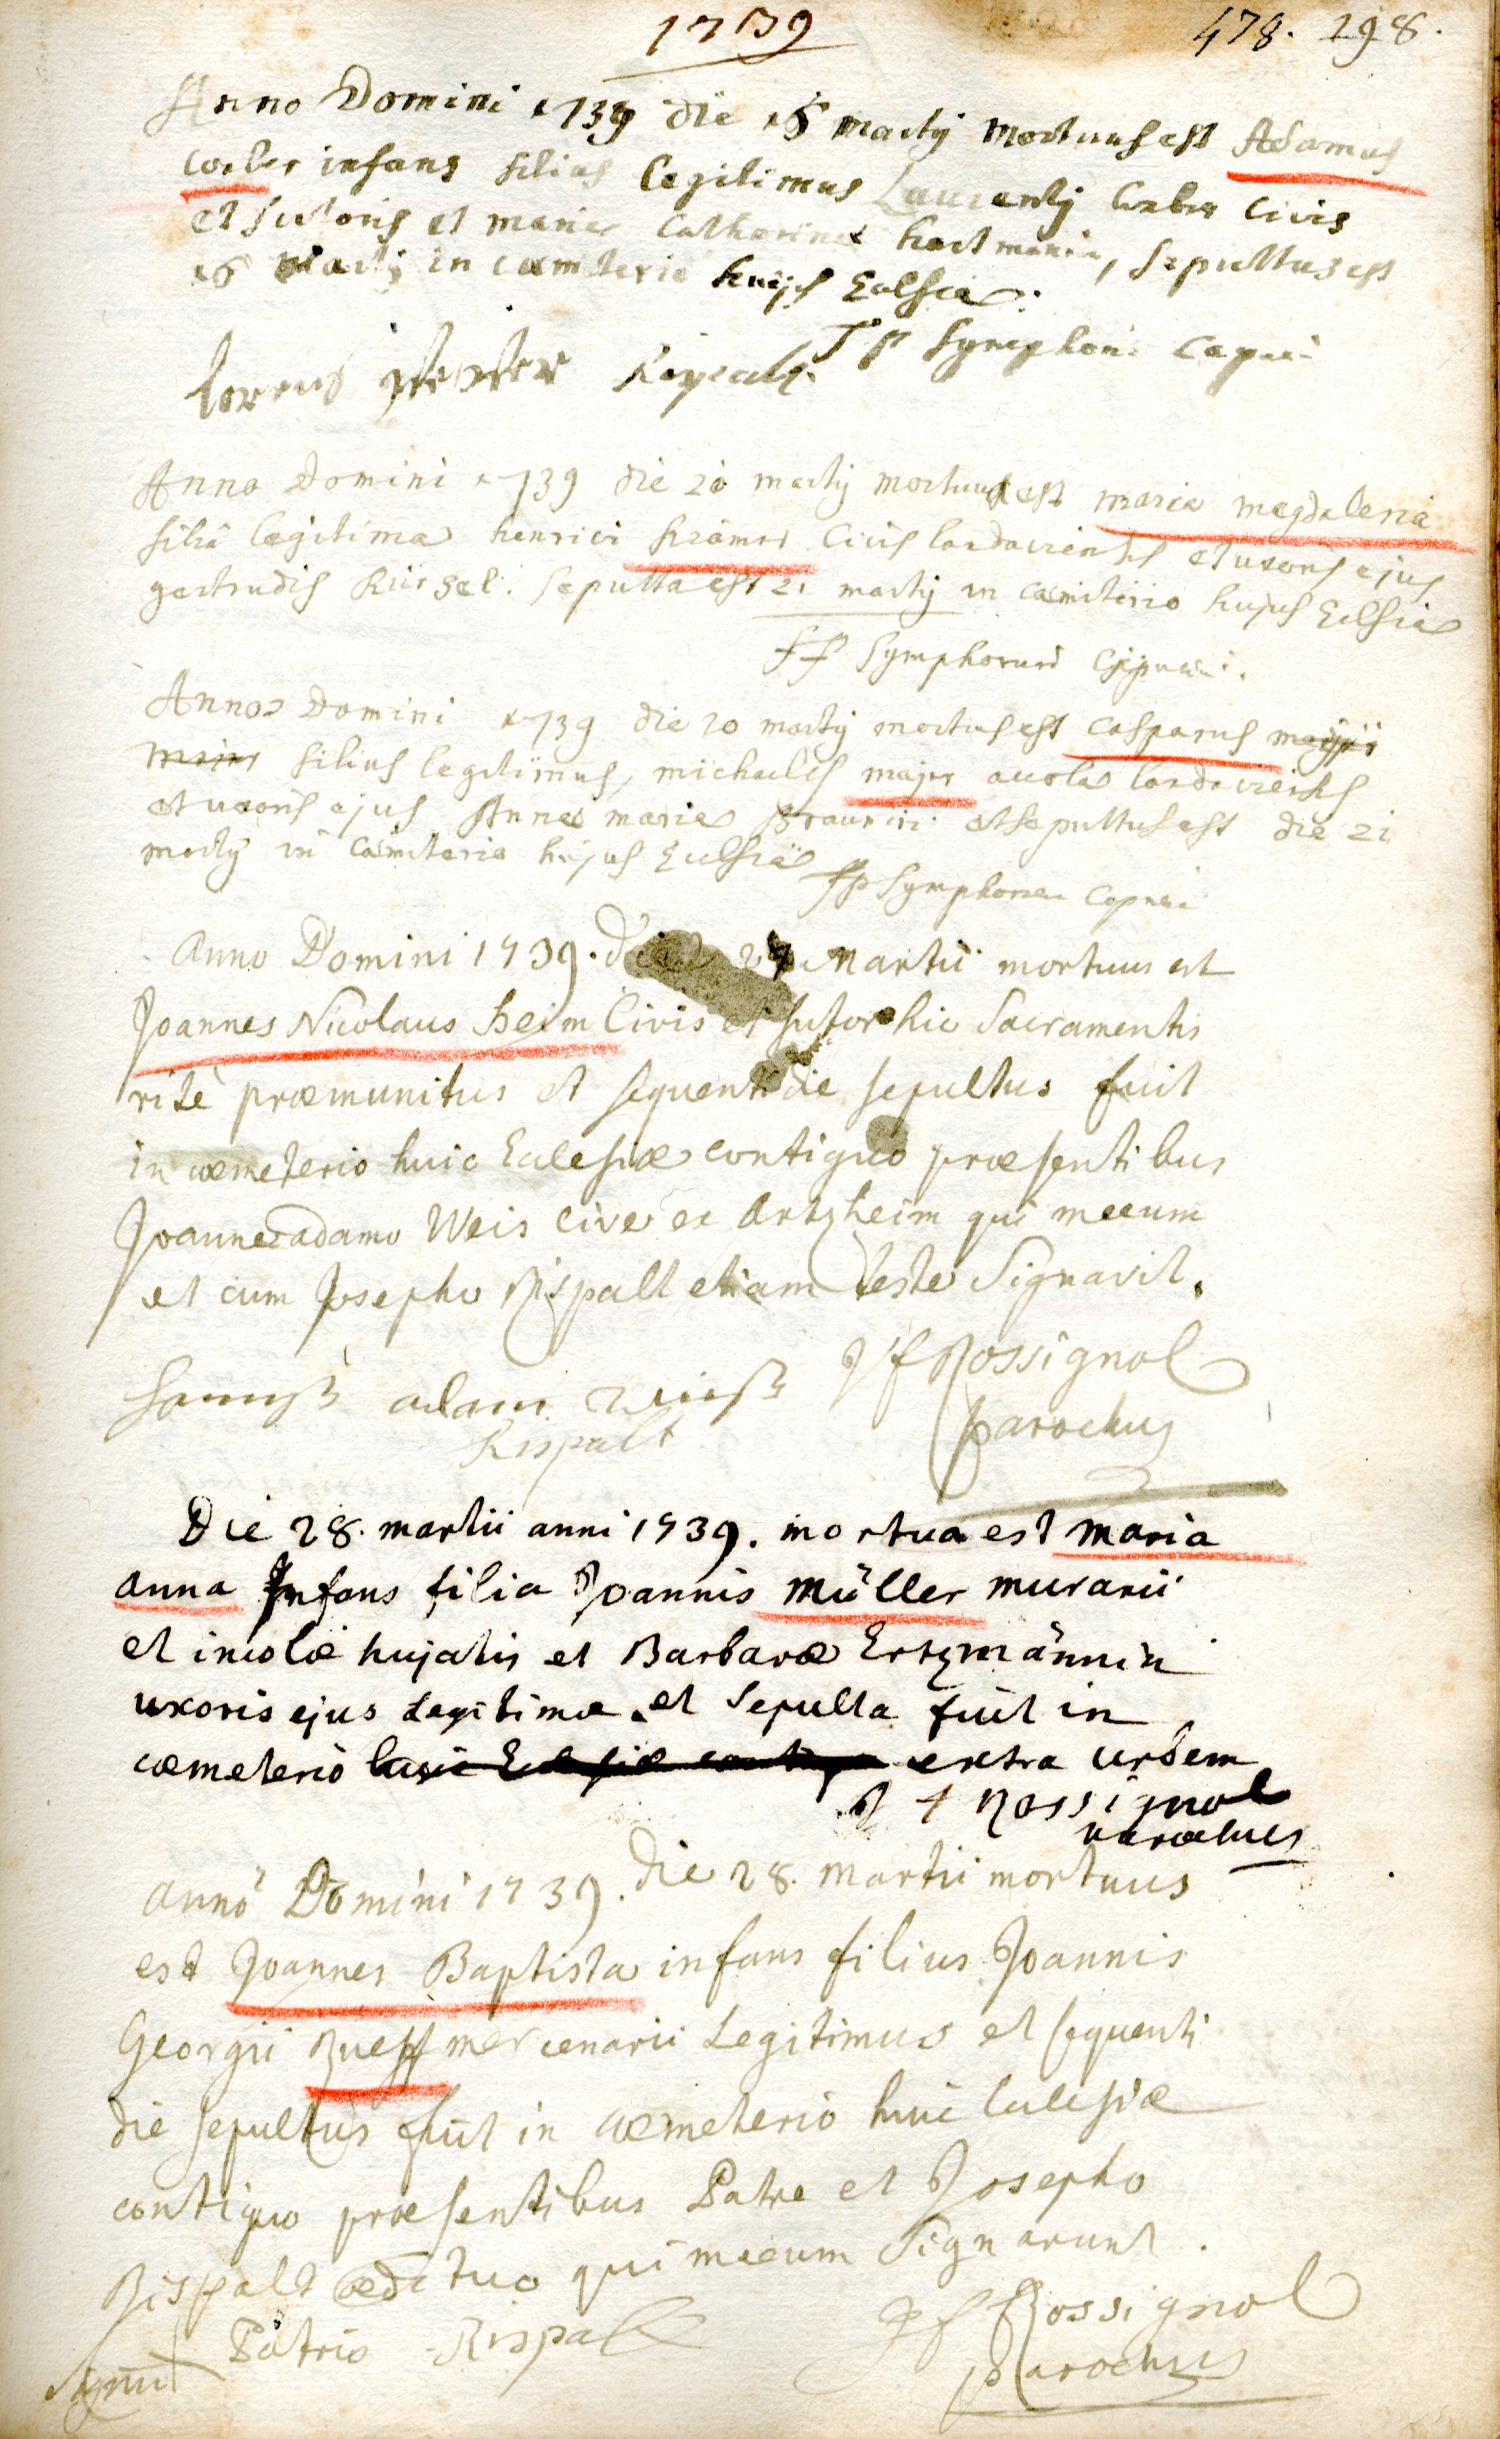 1739
478. 298.
Anno Domini 1739 die 18 martÿ mortuus est Adamus
weber infans filius legitimus Laurentÿ weber civis
et sutoris et mariæ Catharinæ hartmanin, sepultus est
martÿ in cæmiterio hujus Eclsiæ.
fp Symphori Capuci
lorens Rispalt
Anno Domini 1739 die 20 martÿ mortuus est maria magdalena
filia legitima henrici krämer civis landaviensis et uxoris ejus
gertrudis kürzel. sepulta est 21 martÿ in cæmiterio hujus Eclsiæ
fp Symphorian Capucini.
Anno Domini 1739 die 20 martÿ mortus est Casparus
filius legitimus michaelis majer acola landaviensis
et uxoris ejus Annæ mariæ Braunin et sepultus est die 21
martÿ in cæmiterio hujus Eclsiæ
fp Symphorian Capuci
Anno Domini 1739. die 27 Martii mortuus est
Joannes Nicolaus heim Civis et sutor hic Sacramentis
rite præmunitus et sequenti die sepultus fuit
in cœmeterio huic Ecclesiæ contiguo præsentibus
Joanne adamo Weis cive ex Artzheim qui mecum
et cum Josepho Rispalt etiam teste Signavit.
hannß adam weiß
Rispalt
J f Rossignol
parochus
Die 28. martii anni 1739. mortua est maria
anna Infans filia Joannis Müller murarii
et incolæ hujatis et Barbaræ Ertzmännin
uxoris ejus Legitimæ et sepulta fuit in
cœmeterio huic Eclesiæ contiguo extra urbem
J f Rossignol
parochus
Anno Domini 1739. die 28. martii mortuus
est Joannes Baptista infans filius Joannis
Georgii Rueff mercenarii Legitimus et sequenti
die sepultus fuit in cœmeterio huic Eclesiæ
contiguo præsentibus Patre et Josepho
Rispalt ædituo qui mecum Signarunt.
Signum Patris Rispalt
J f Rossignol
parochus